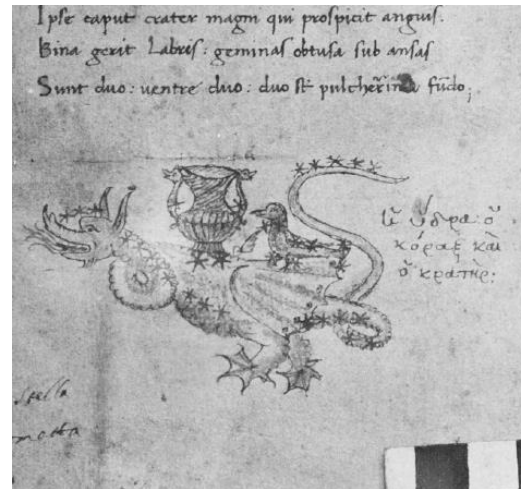 Ipse caput crater magni qui prospicit anguis.
Bina gerit Labris: geminas obtusa sub ansas
Sunt duo: ventre duo: duo st pulcherrima fudo;
ἡ ὕδρα ὁ
κόραξ καὶ
ὁ κρατὴρ:
stella